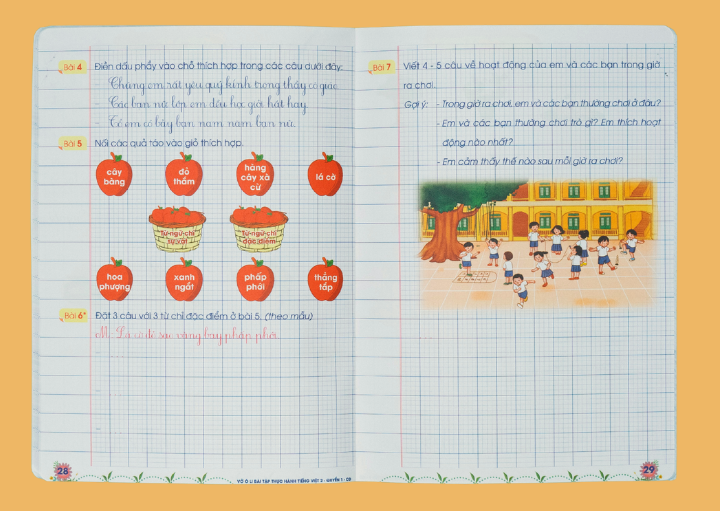 Bài 4 Điền dấu phẩy vào chỗ thích hợp trong các câu dưới đây:
- Chúng em rất yêu quý kính trọng thầy cô giáo.
- Các bạn nữ lớp em đều học giỏi hát hay.
- Tổ em có bảy bạn nam năm bạn nữ.
Bài 5 Nối các quả táo vào giỏ thích hợp.
cây
bàng
đỏ
thắm
hàng
cây xà
cừ
lá cờ
Từ ngữ chỉ
sự vật
Từ ngữ chỉ
đặc điểm
hoa
phượng
xanh
ngắt
phấp
phới
thẳng
tắp
Bài 6* Đặt 3 câu với 3 từ chỉ đặc điểm ở bài 5. (theo mẫu)
M: Lá cờ đỏ sao vàng bay phấp phới.
28
VỞ Ô LI BÀI TẬP THỰC HÀNH TIẾNG VIỆT 2 - QUYỂN 1 -
Bài 7 Viết 4 - 5 câu về hoạt động của em và các bạn trong giờ
ra chơi.
Gợi ý: - Trong giờ ra chơi, em và các bạn thường chơi ở đâu?
- Em và các bạn thường chơi trò gì? Em thích hoạt
động nào nhất?
- Em cảm thấy thế nào sau mỗi giờ ra chơi?
29